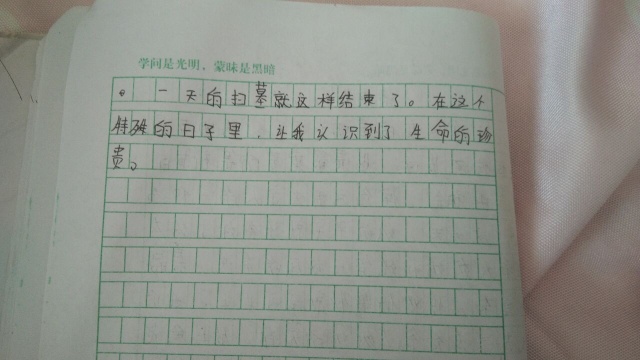 学问是光明，蒙昧是黑暗
。一天的扫墓就这样结束了。在这个
特殊的日子里，让我认识到了生命的珍
贵。